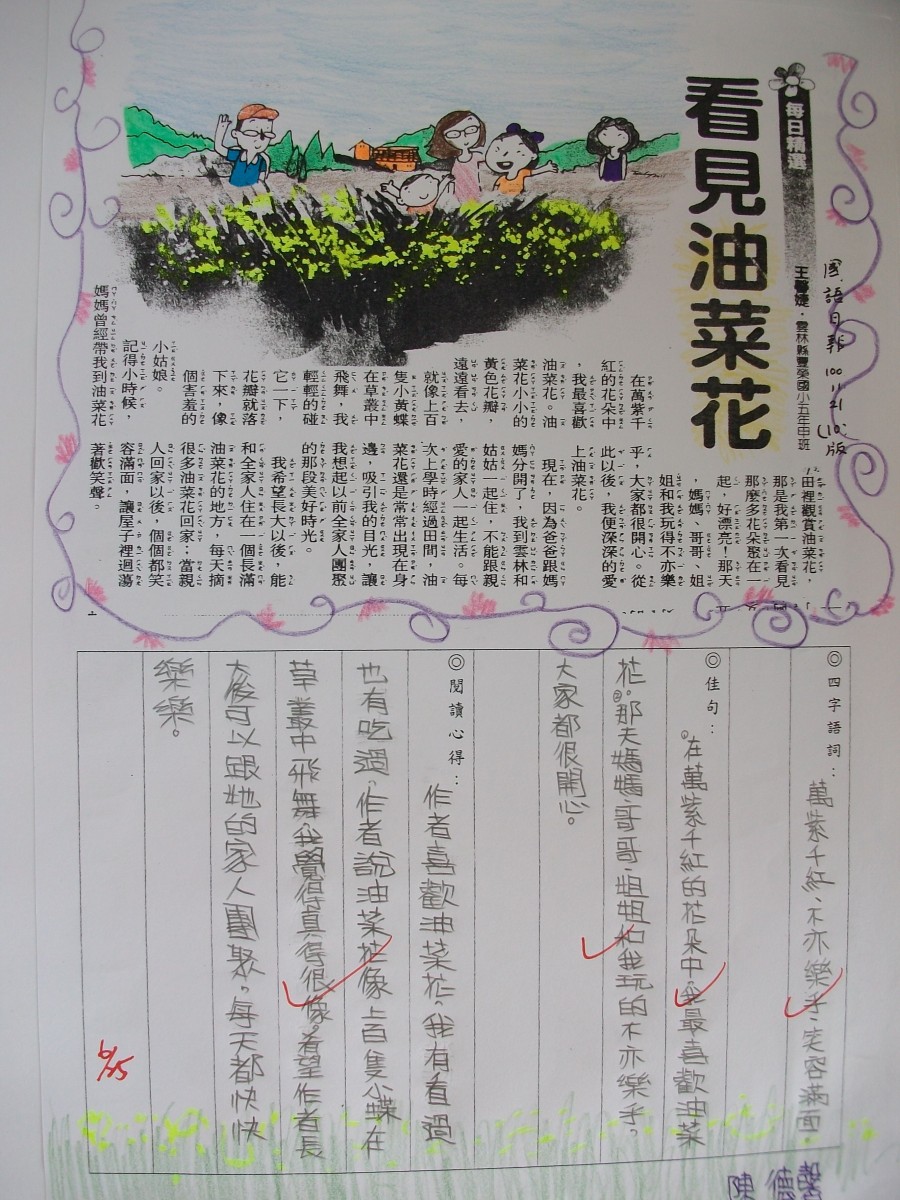 每日精選
看見油菜花
國語日報 100.11.21 (10)版
雲林縣豐榮國小五年甲班
在萬紫千
紅的花朵中
，我最喜歡
油菜花。油
菜花小小的
黃色花瓣，
遠遠看去，
就像上百
隻小黃蝶
在草叢中
飛舞，我
輕輕的碰
它一下，
花瓣就落
下來，像
個害羞的
小姑娘。
記得小時候，
媽媽曾經帶我到油菜花
田裡觀賞油菜花，
那是我第一次看見
那麼多花朵聚在一
起，好漂亮！那天
，媽媽、哥哥、姐
姐和我玩得不亦樂
乎，大家都很開心。從
此以後，我便深深的愛
上油菜花。
現在，因為爸爸跟媽
媽分開了，我到雲林和
姑姑一起住，不能跟親
愛的家人一起生活。每
次上學時經過田間，油
菜花還是常常出現在身
邊，吸引我的目光，讓
我想起以前全家人團聚
的那段美好時光。
我希望長大以後，能
和全家人住在一個長滿
油菜花的地方，每天摘
很多油菜花回家；當親
人回家以後，個個都笑
容滿面，讓屋子裡迴蕩
著歡笑聲。
◎四字語詞：萬紫千紅、不亦樂乎、笑容滿面。
◎佳句：在萬紫千紅的花朵中，我最喜歡油菜
花。②那天媽媽、哥哥、姐姐和我玩的不亦樂乎，
大家都很開心。
◎閱讀心得：作者喜歡油菜花。我有看過
也有吃過，作者說油菜花像上百隻小蝶在
草叢中飛舞，我覺得真得很像。希望作者長
大後可以跟她的家人團聚，每天都快快
樂樂。
6/15
陳德馨